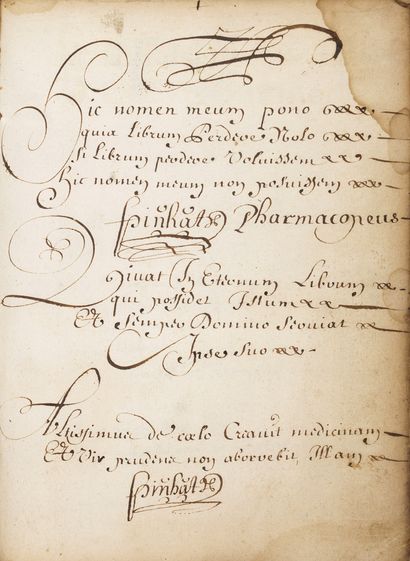 Hic nomen meum pono
quia Librum Perdere Nolo
si Librum perdere Voluissem
Hic nomen meum non posuissem
Pharmacopeus
Vivat In Eternum Librum
qui possidet Istum
Et semper Domino Serviat
Ipse suo
Altissimus de cœlo Creavit medicinam
Et Vir prudens non aborrebit Illam